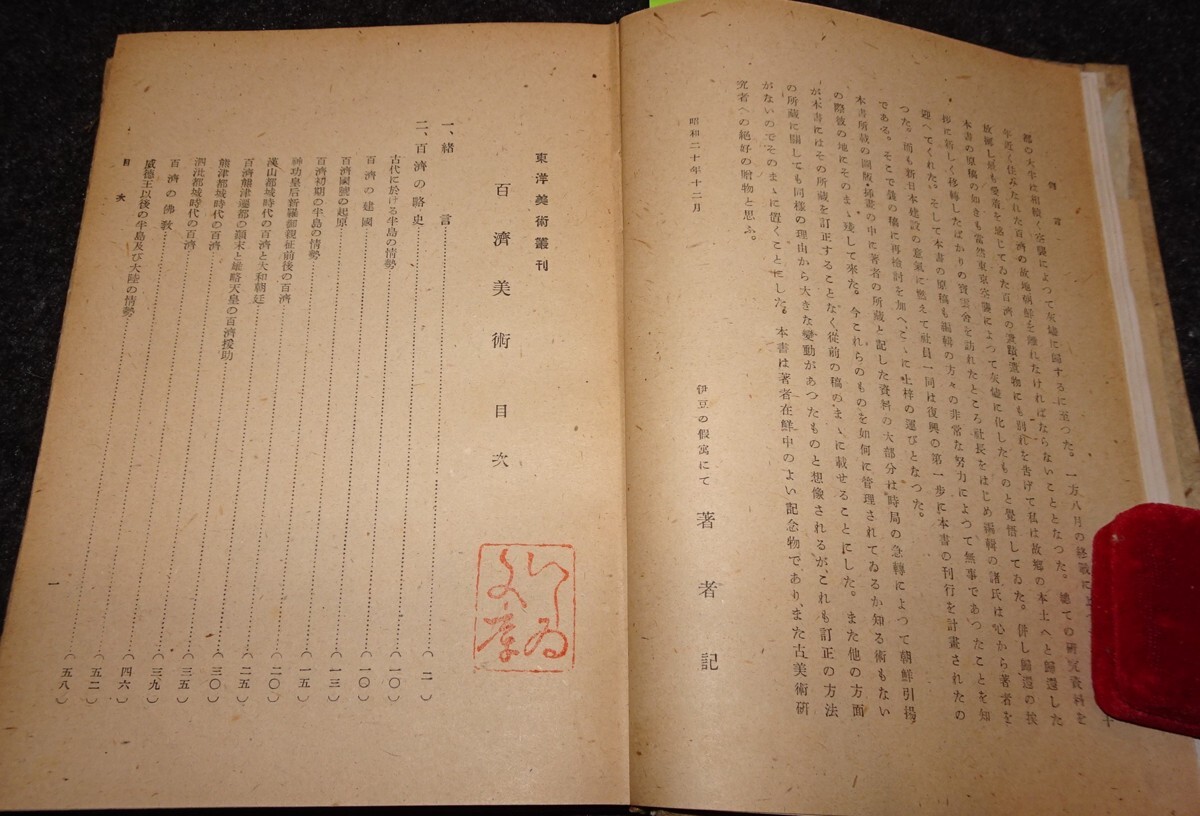 都の大半は相踵ぐ空襲によつて灰燼に歸するに至つた。一方八月の終戰によつ
年近く住みなれた百濟の故地朝鮮を離れなければならないこととなつた。總ての研究資料を
放擲し最も愛着を感じてゐた百濟の遺蹟・遺物にも別れを告げて私は故鄕の本土へと歸還した
本書の原稿の如きも當然東京空襲によつて灰燼に化したものと覺悟してゐた。併し歸還の挨
拶に新しく移轉したばかりの寶雲舍を訪れたところ社長をはじめ編輯の諸氏は心から著者を
迎へてくれた。そして本書の原稿も編輯の方々の非常な努力によつて無事であつたことを知
つた。而も新日本建設の意氣に燃えて社員一同は復興の第一步に本書の刊行を計畫されたの
である。そこで舊の稿に再檢討を加へ、こゝに上梓の運びとなつた。
本書所載の圖版・插畫の中に著者の所藏と記した資料の大部分は時局の急轉によつて朝鮮引揚
の際彼の地にそのまゝ殘して來た。今これらのものを如何に管理されてゐるか知る術もない
が、本書にはその所藏を訂正することなく從前の稿のまゝに載せることにした。また他の方面
の所藏に關しても同樣の理由から大きな變動があつたものと想像されるが、これも訂正の方法
がないのでそのまゝに置くことにした。本書は著者在鮮中のよい記念物であり、また古美術研
究者への絶好の贈物と思ふ。
昭和二十年十二月
伊豆の假寓にて 著者記
東洋美術叢刊
百濟美術目次
一、緒言……(一)
二、百濟の略史……(二)
古代に於ける半島の情勢……(一〇)
百濟の建國……(一〇)
百濟國號の起原……(一三)
百濟初期の半島の情勢……(一五)
神功皇后新羅御親征前後の百濟……(二〇)
漢山都城時代の百濟と大和朝廷……(二五)
百濟熊津遷都の顚末と雄略天皇の百濟援助……(三〇)
熊津都城時代の百濟……(三五)
泗沘都城時代の百濟……(三九)
百濟の佛敎……(四六)
威德王以後の半島及び大陸の情勢……(五二)
(五八)
目次
一